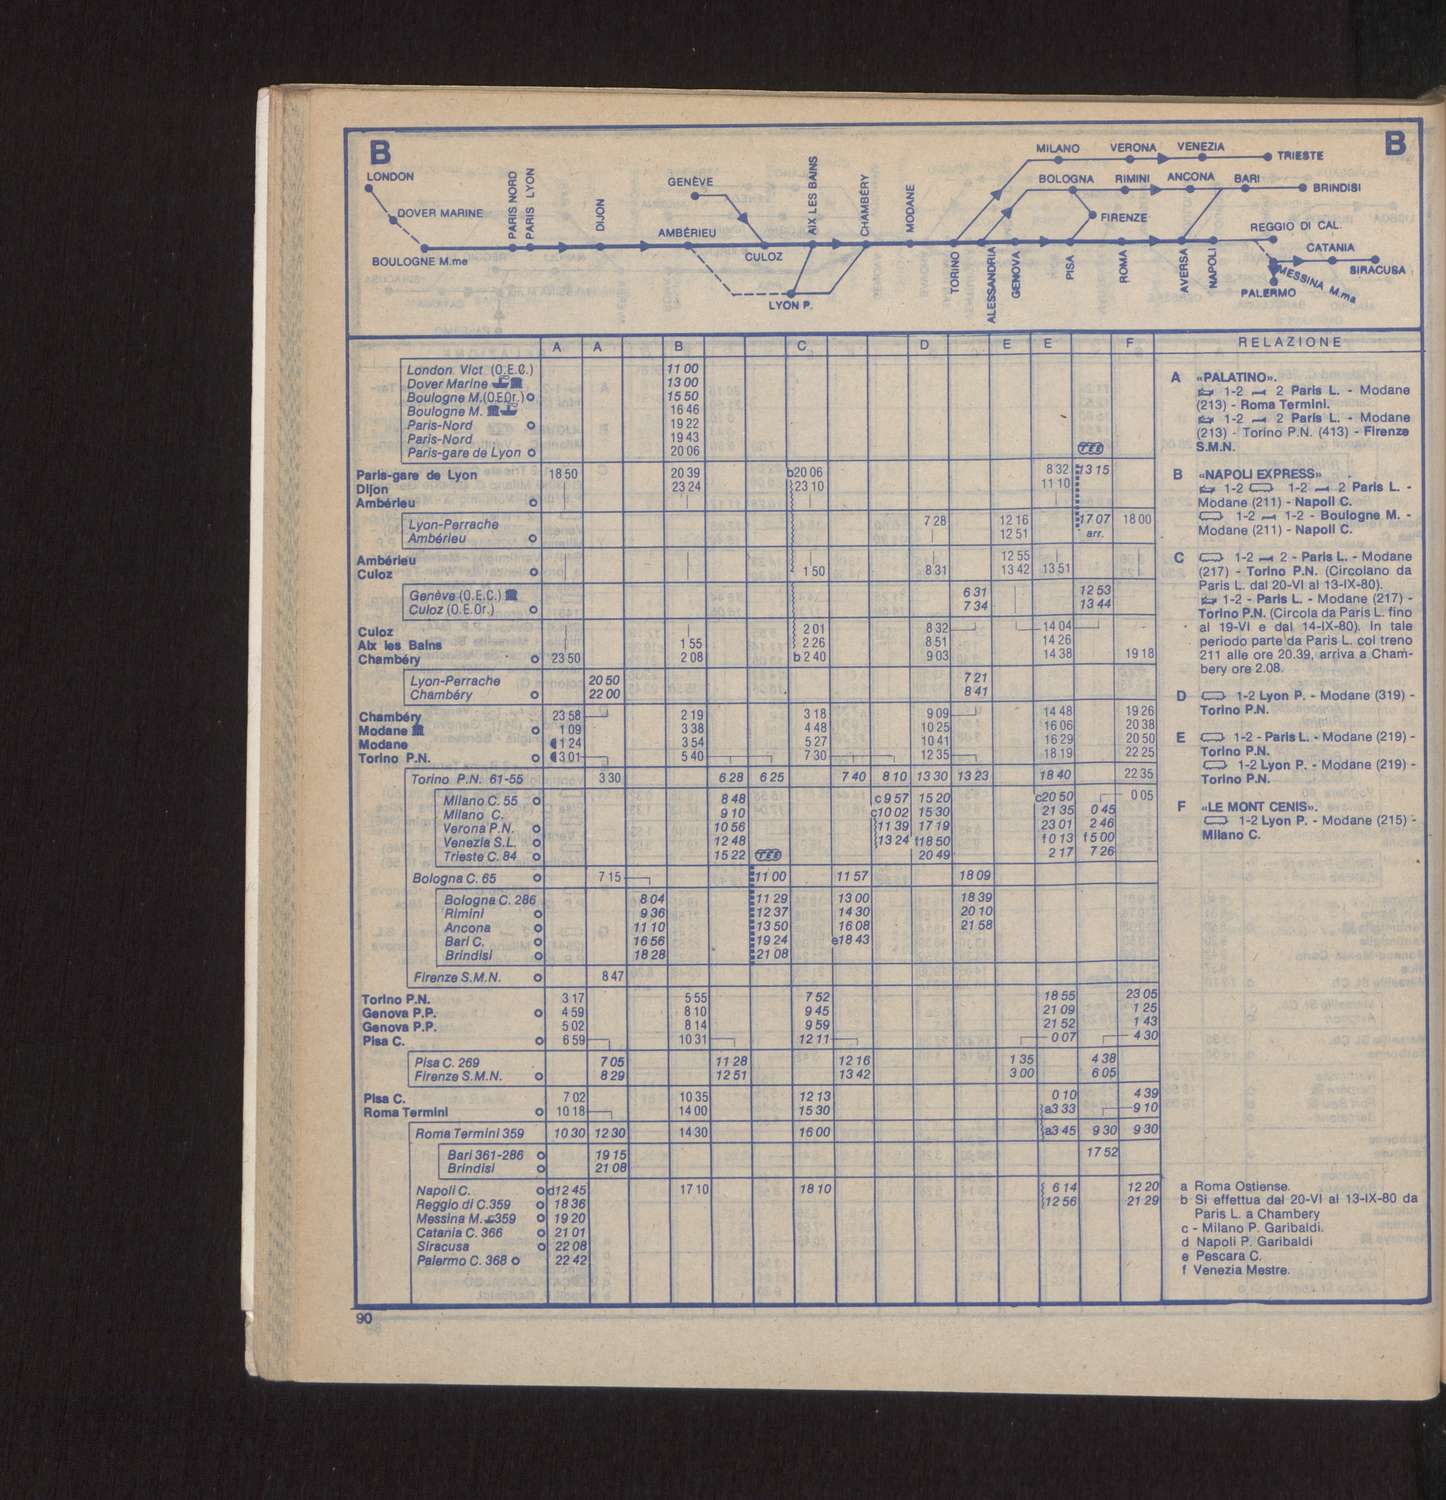 B B
LONDON
DOVER MARINE
BOULOGNE M.me
PARIS NORD
PARIS LYON
DIJON
AMBÉRIEU
GENÈVE
CULOZ
LYON P.
AIX LES BAINS
CHAMBÉRY
MODANE
TORINO
ALESSANDRIA
GENOVA
PISA
ROMA
AVERSA
NAPOLI
MILANO VERONA VENEZIA TRIESTE
BOLOGNA RIMINI ANCONA BARI BRINDISI
FIRENZE
REGGIO DI CAL.
CATANIA
SIRACUSA
MESSINA M.ma
PALERMO
A A B C D E E F RELAZIONE
London Vict. (O.E.C.) 11 00
Dover Marine 13 00
Boulogne M.(O.E.Or.) 15 50
Boulogne M. 16 46
Paris-Nord 19 22
Paris-Nord 19 43
Paris-gare de Lyon 20 06 TEE
Paris-gare de Lyon 18 50 20 39 b20 06 8 32 13 15
Dijon 23 24 23 10 11 10
Ambérieu
Lyon-Perrache 7 28 12 16 17 07 18 00
Ambérieu 12 51 arr.
Ambérieu 12 55
Culoz 1 50 8 31 13 42 13 51
Genève (O.E.C.) 6 31 12 53
Culoz (O.E.Or.) 7 34 13 44
Culoz 2 01 8 32 14 04
Aix les Bains 1 55 2 26 8 51 14 26
Chambéry 23 50 2 08 b 2 40 9 03 14 38 19 18
Lyon-Perrache 20 50 7 21
Chambéry 22 00 8 41
Chambéry 23 58 2 19 3 18 9 09 14 48 19 26
Modane 1 09 3 38 4 48 10 25 16 06 20 38
Modane 1 24 3 54 5 27 10 41 16 29 20 50
Torino P.N. 3 01 5 40 7 30 12 35 18 19 22 25
Torino P.N. 61-55 3 30 6 28 6 25 7 40 8 10 13 30 13 23 18 40 22 35
Milano C. 55 8 48 c 9 57 15 20 c20 50 0 05
Milano C. 9 10 c10 02 15 30 21 35 0 45
Verona P.N. 10 56 11 39 17 19 23 01 2 46
Venezia S.L. 12 48 13 24 f18 50 f 0 13 f 5 00
Trieste C. 84 15 22 TEE 20 49 2 17 7 26
Bologna C. 65 7 15 11 00 11 57 18 09
Bologna C. 286 8 04 11 29 13 00 18 39
Rimini 9 36 12 37 14 30 20 10
Ancona 11 10 13 50 16 08 21 58
Bari C. 16 56 19 24 e18 43
Brindisi 18 28 21 08
Firenze S.M.N. 8 47
Torino P.N. 3 17 5 55 7 52 18 55 23 05
Genova P.P. 4 59 8 10 9 45 21 09 1 25
Genova P.P. 5 02 8 14 9 59 21 52 1 43
Pisa C. 6 59 10 31 12 11 0 07 4 30
Pisa C. 269 7 05 11 28 12 16 1 35 4 38
Firenze S.M.N. 8 29 12 51 13 42 3 00 6 05
Pisa C. 7 02 10 35 12 13 0 10 4 39
Roma Termini 10 18 14 00 15 30 a3 33 9 10
Roma Termini 359 10 30 12 30 14 30 16 00 a3 45 9 30 9 30
Bari 361-286 19 15 17 52
Brindisi 21 08
Napoli C. d12 45 17 10 18 10 6 14 12 20
Reggio di C.359 18 36 12 56 21 29
Messina M. 359 19 20
Catania C. 366 21 01
Siracusa 22 08
Palermo C. 368 22 42
A «PALATINO».
1-2 2 Paris L. - Modane
(213) - Roma Termini.
1-2 2 Paris L. - Modane
(213) - Torino P.N. (413) - Firenze
S.M.N.
B «NAPOLI EXPRESS»
1-2 1-2 2 Paris L. -
Modane (211) - Napoli C.
1-2 1-2 - Boulogne M. -
Modane (211) - Napoli C.
C 1-2 2 - Paris L. - Modane
(217) - Torino P.N. (Circolano da
Paris L. dal 20-VI al 13-IX-80).
1-2 - Paris L. - Modane (217) -
Torino P.N. (Circola da Paris L. fino
al 19-VI e dal 14-IX-80). In tale
periodo parte da Paris L. col treno
211 alle ore 20.39, arriva a Cham-
bery ore 2.08.
D 1-2 Lyon P. - Modane (319) -
Torino P.N.
E 1-2 - Paris L. - Modane (219) -
Torino P.N.
1-2 Lyon P. - Modane (219) -
Torino P.N.
F «LE MONT CENIS».
1-2 Lyon P. - Modane (215) -
Milano C.
a Roma Ostiense.
b Si effettua dal 20-VI al 13-IX-80 da
Paris L. a Chambery
c - Milano P. Garibaldi.
d Napoli P. Garibaldi
e Pescara C.
f Venezia Mestre.
90